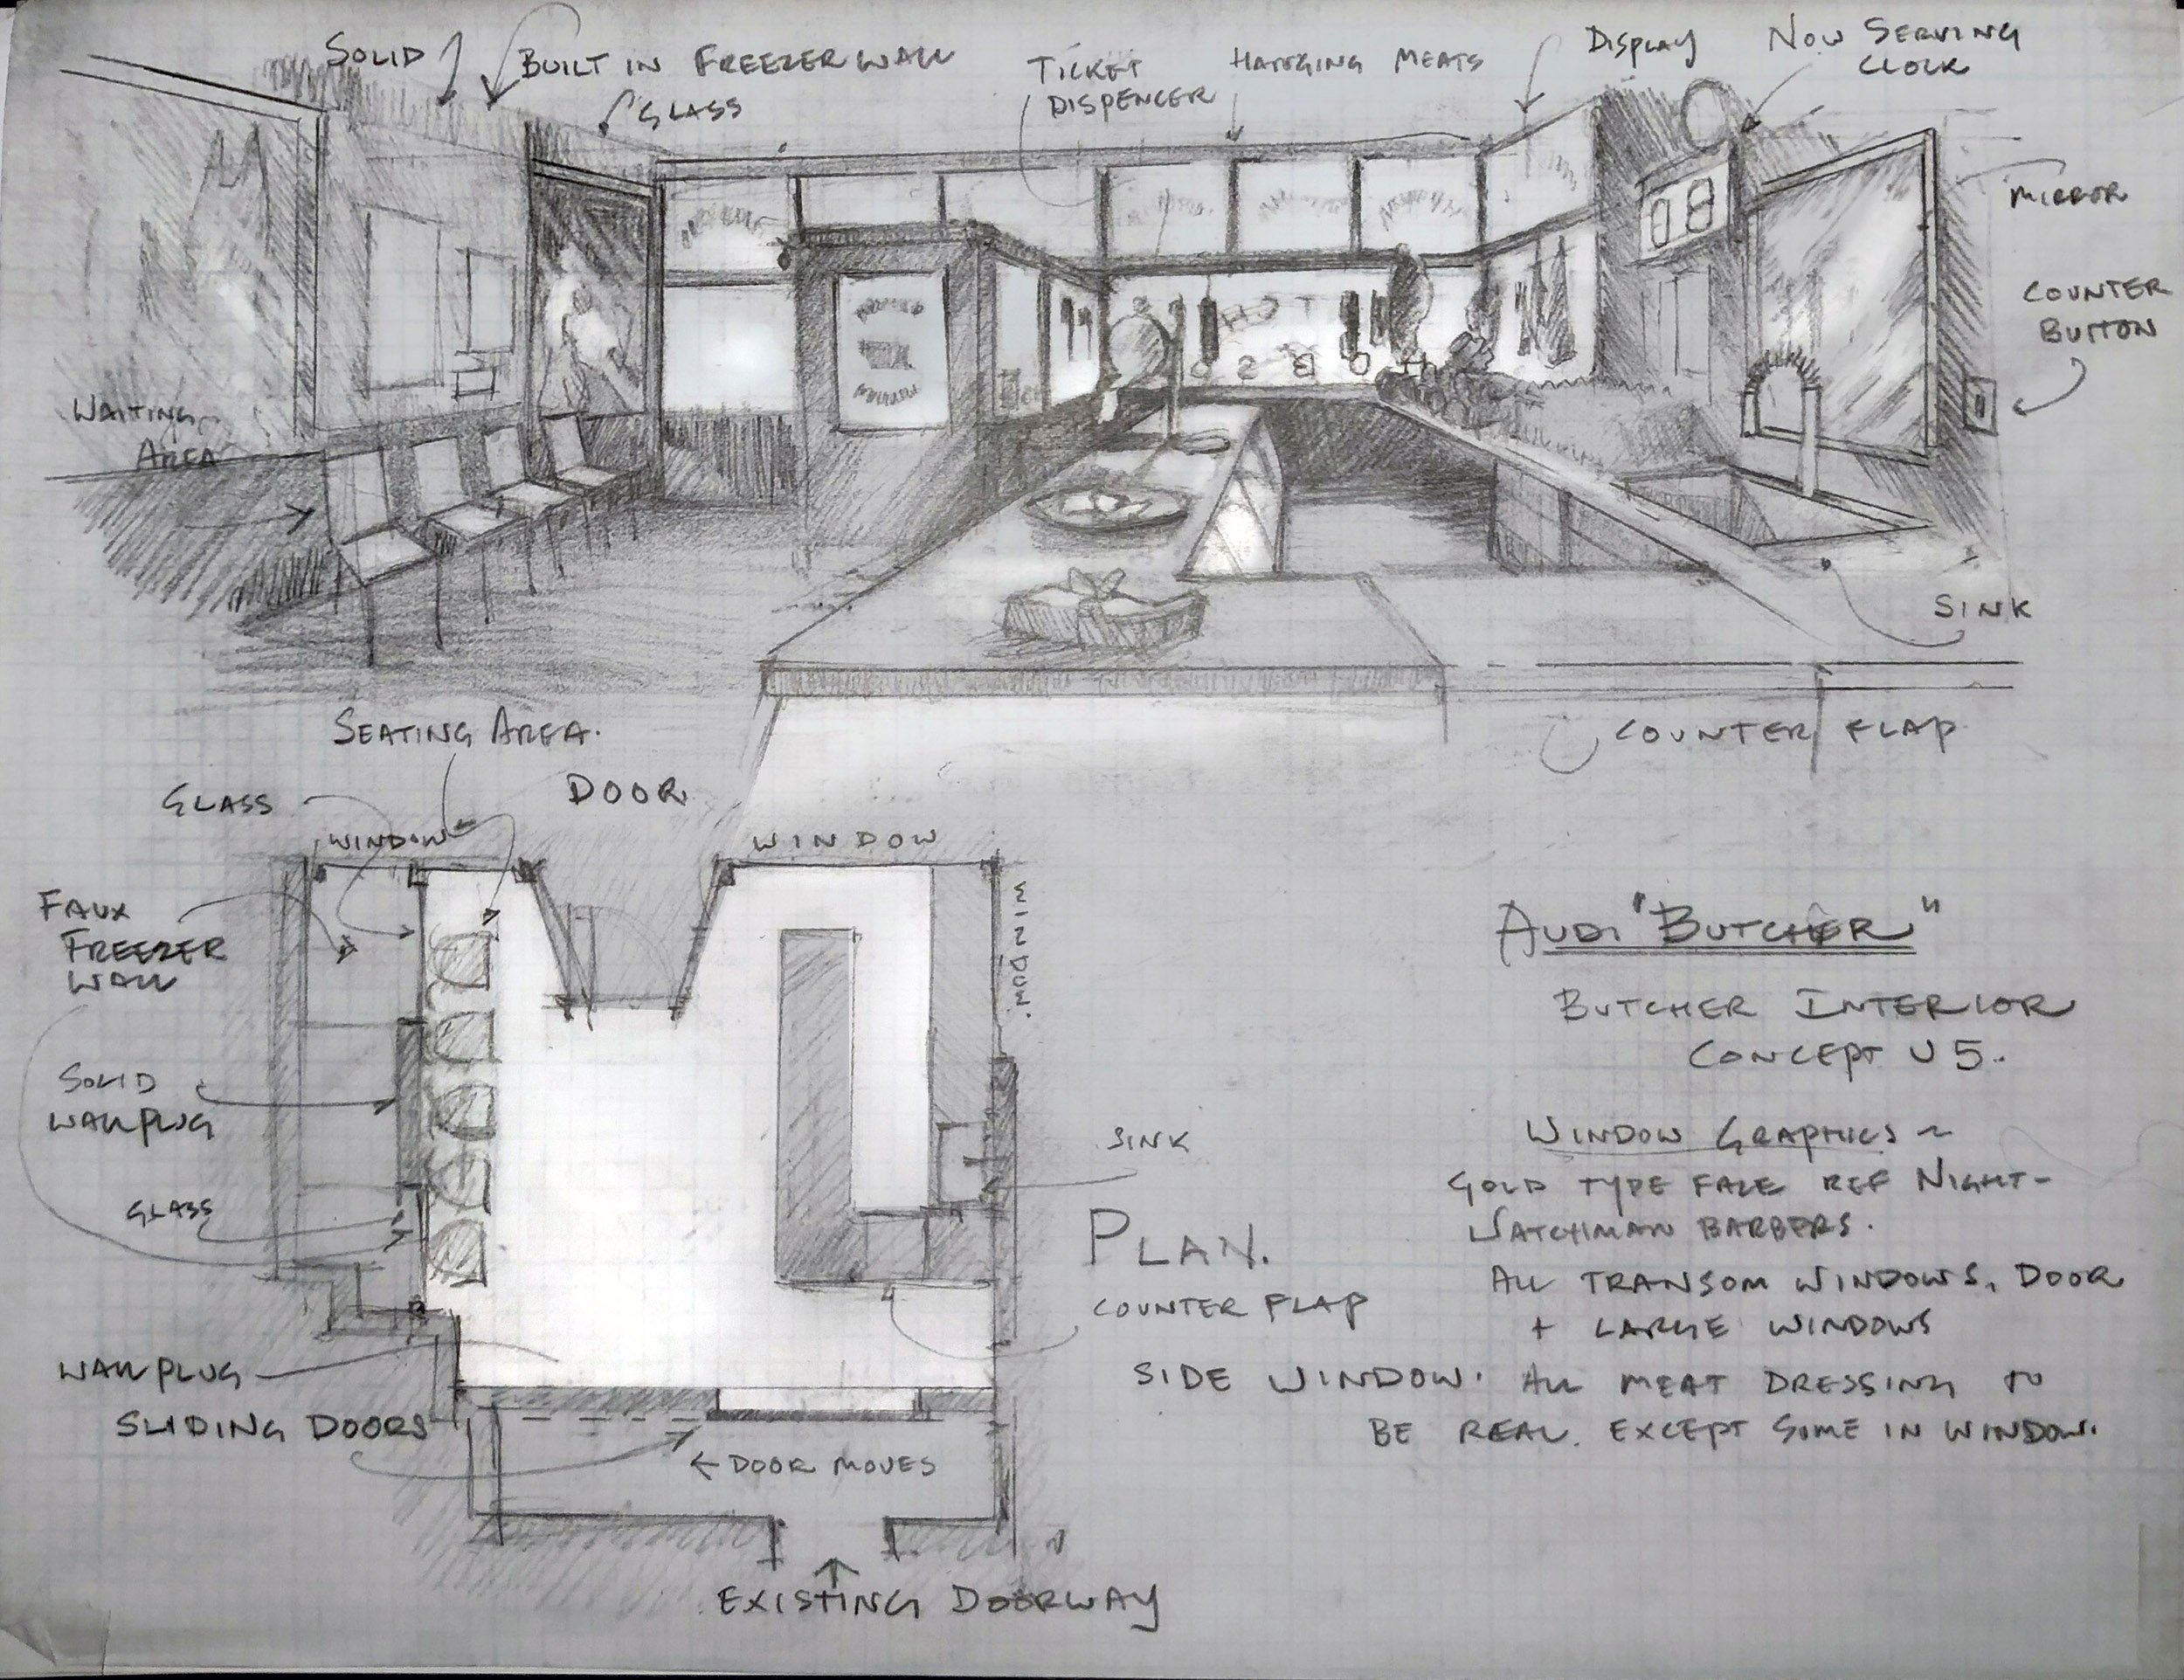 SOLID
BUILT IN FREEZER WALL
GLASS
TICKET
DISPENCER
HANGING MEATS
DISPLAY
NOW SERVING
CLOCK
MIRROR
08
COUNTER
BUTTON
WAITING
AREA
SINK
COUNTER FLAP
SEATING AREA.
DOOR
GLASS
WINDOW
WINDOW
WINDOW.
FAUX
FREEZER
WALL
SOLID
WALL PLUG
GLASS
SINK
PLAN.
COUNTER FLAP
WALL PLUG
SLIDING DOORS
← DOOR MOVES
EXISTING DOORWAY
AUDI "BUTCHER"
BUTCHER INTERIOR
CONCEPT V5..
WINDOW GRAPHICS ~
GOLD TYPE FACE REF NIGHT-
WATCHMAN BARBERS.
ALL TRANSOM WINDOWS, DOOR
+ LARGE WINDOWS
SIDE WINDOW. ALL MEAT DRESSING TO
BE REAL. EXCEPT SOME IN WINDOW.